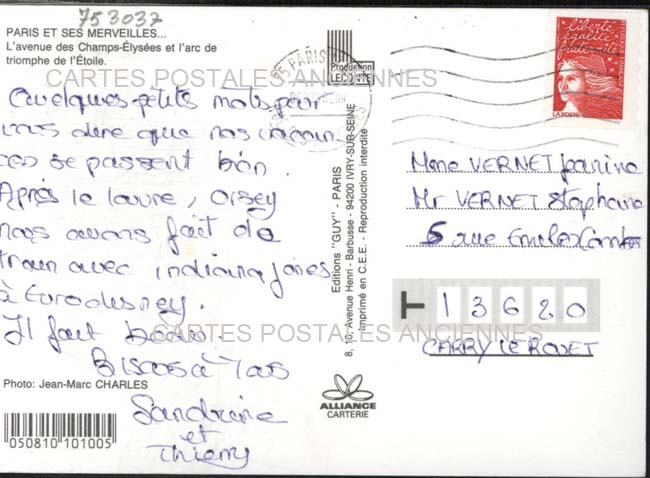 753037
PARIS ET SES MERVEILLES...
L'avenue des Champs-Élysées et l'arc de
triomphe de l'Étoile.
CARTES POSTALES ANCIENNES
Quelques petits mots pour
vous dire que nos vacan-
ces se passent bon.
Après le louvre, orsey
nous avons fait de
train avec indiana jones
à Eurodisney.
Il fait beau.
CARTES POSTALES ANCIENNES
Bisous à Tous
Sandrine
et
Thierry
Photo: Jean-Marc CHARLES
050810 101005
Production
LECONTE
Editions "GUY" - PARIS
8, 10, Avenue Henri - Barbusse - 94200 IVRY-SUR-SEINE
Imprimé en C.E.E. - Reproduction interdite
ALLIANCE
CARTERIE
PARIS
liberté
égalité
fraternité
LA POSTE
Mme VERNET Jeanine
Mr VERNET Stephane
5 rue Emile
13620
CARRY LE ROUET